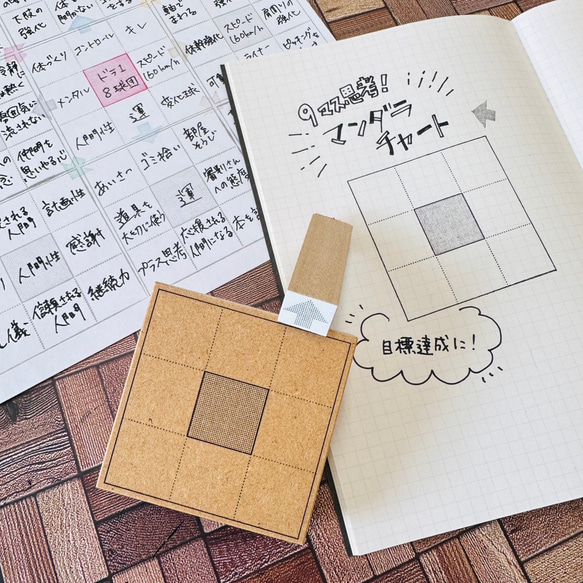 下肢の
強化
体づくり
コントロール
キレ
メンタル
ドラ1
8球団
スピード
160km/h
人間性
運
変化球
体幹強化
スピード
160km/h
可動
ライナー
仲間を
思いやる心
人間性
計画性
感謝
継続力
信頼される
人間
あいさつ
ゴミ拾い
部屋
そうじ
道具を
大切に使う
運
審判さん
への態度
プラス思考
応援される
人間になる
本を
9マス思考!
マンダラ
チャート
目標達成に!